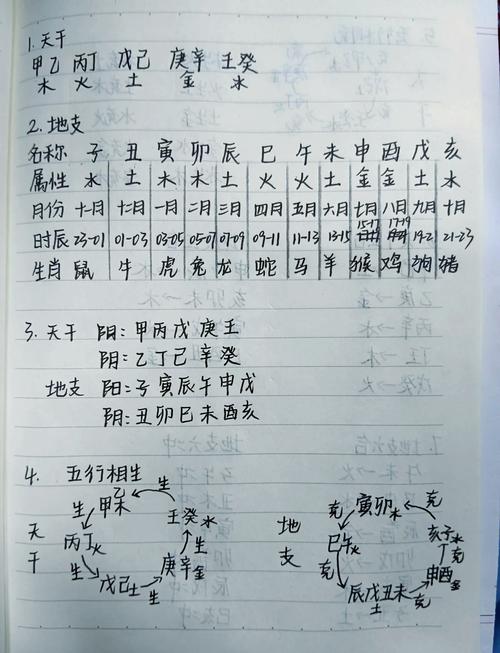 1. 天干
甲乙 丙丁 戊己 庚辛 壬癸
木 火 土 金 水
2. 地支
名称 子 丑 寅 卯 辰 巳 午 未 申 酉 戌 亥
属性 水 土 木 木 土 火 火 土 金 金 土 水
月份 十一月 十二月 一月 二月 三月 四月 五月 六月 七月 八月 九月 十月
15-17 17-19
时辰 23-01 01-03 03-05 05-07 07-09 09-11 11-13 13-15 19-21 21-23
生肖 鼠 牛 虎 兔 龙 蛇 马 羊 猴 鸡 狗 猪
3. 天干 阴: 甲丙戊庚壬
阴: 乙丁己辛癸
地支 阳: 子寅辰午申戌
阴: 丑卯巳未酉亥
4. 五行相生
天干
生 甲乙木 生
丙丁火 壬癸水
生 生
戊己土 生 庚辛金
地支
克 寅卯木 克
巳午火 亥子水
克 克
辰戌丑未土 克 申酉金